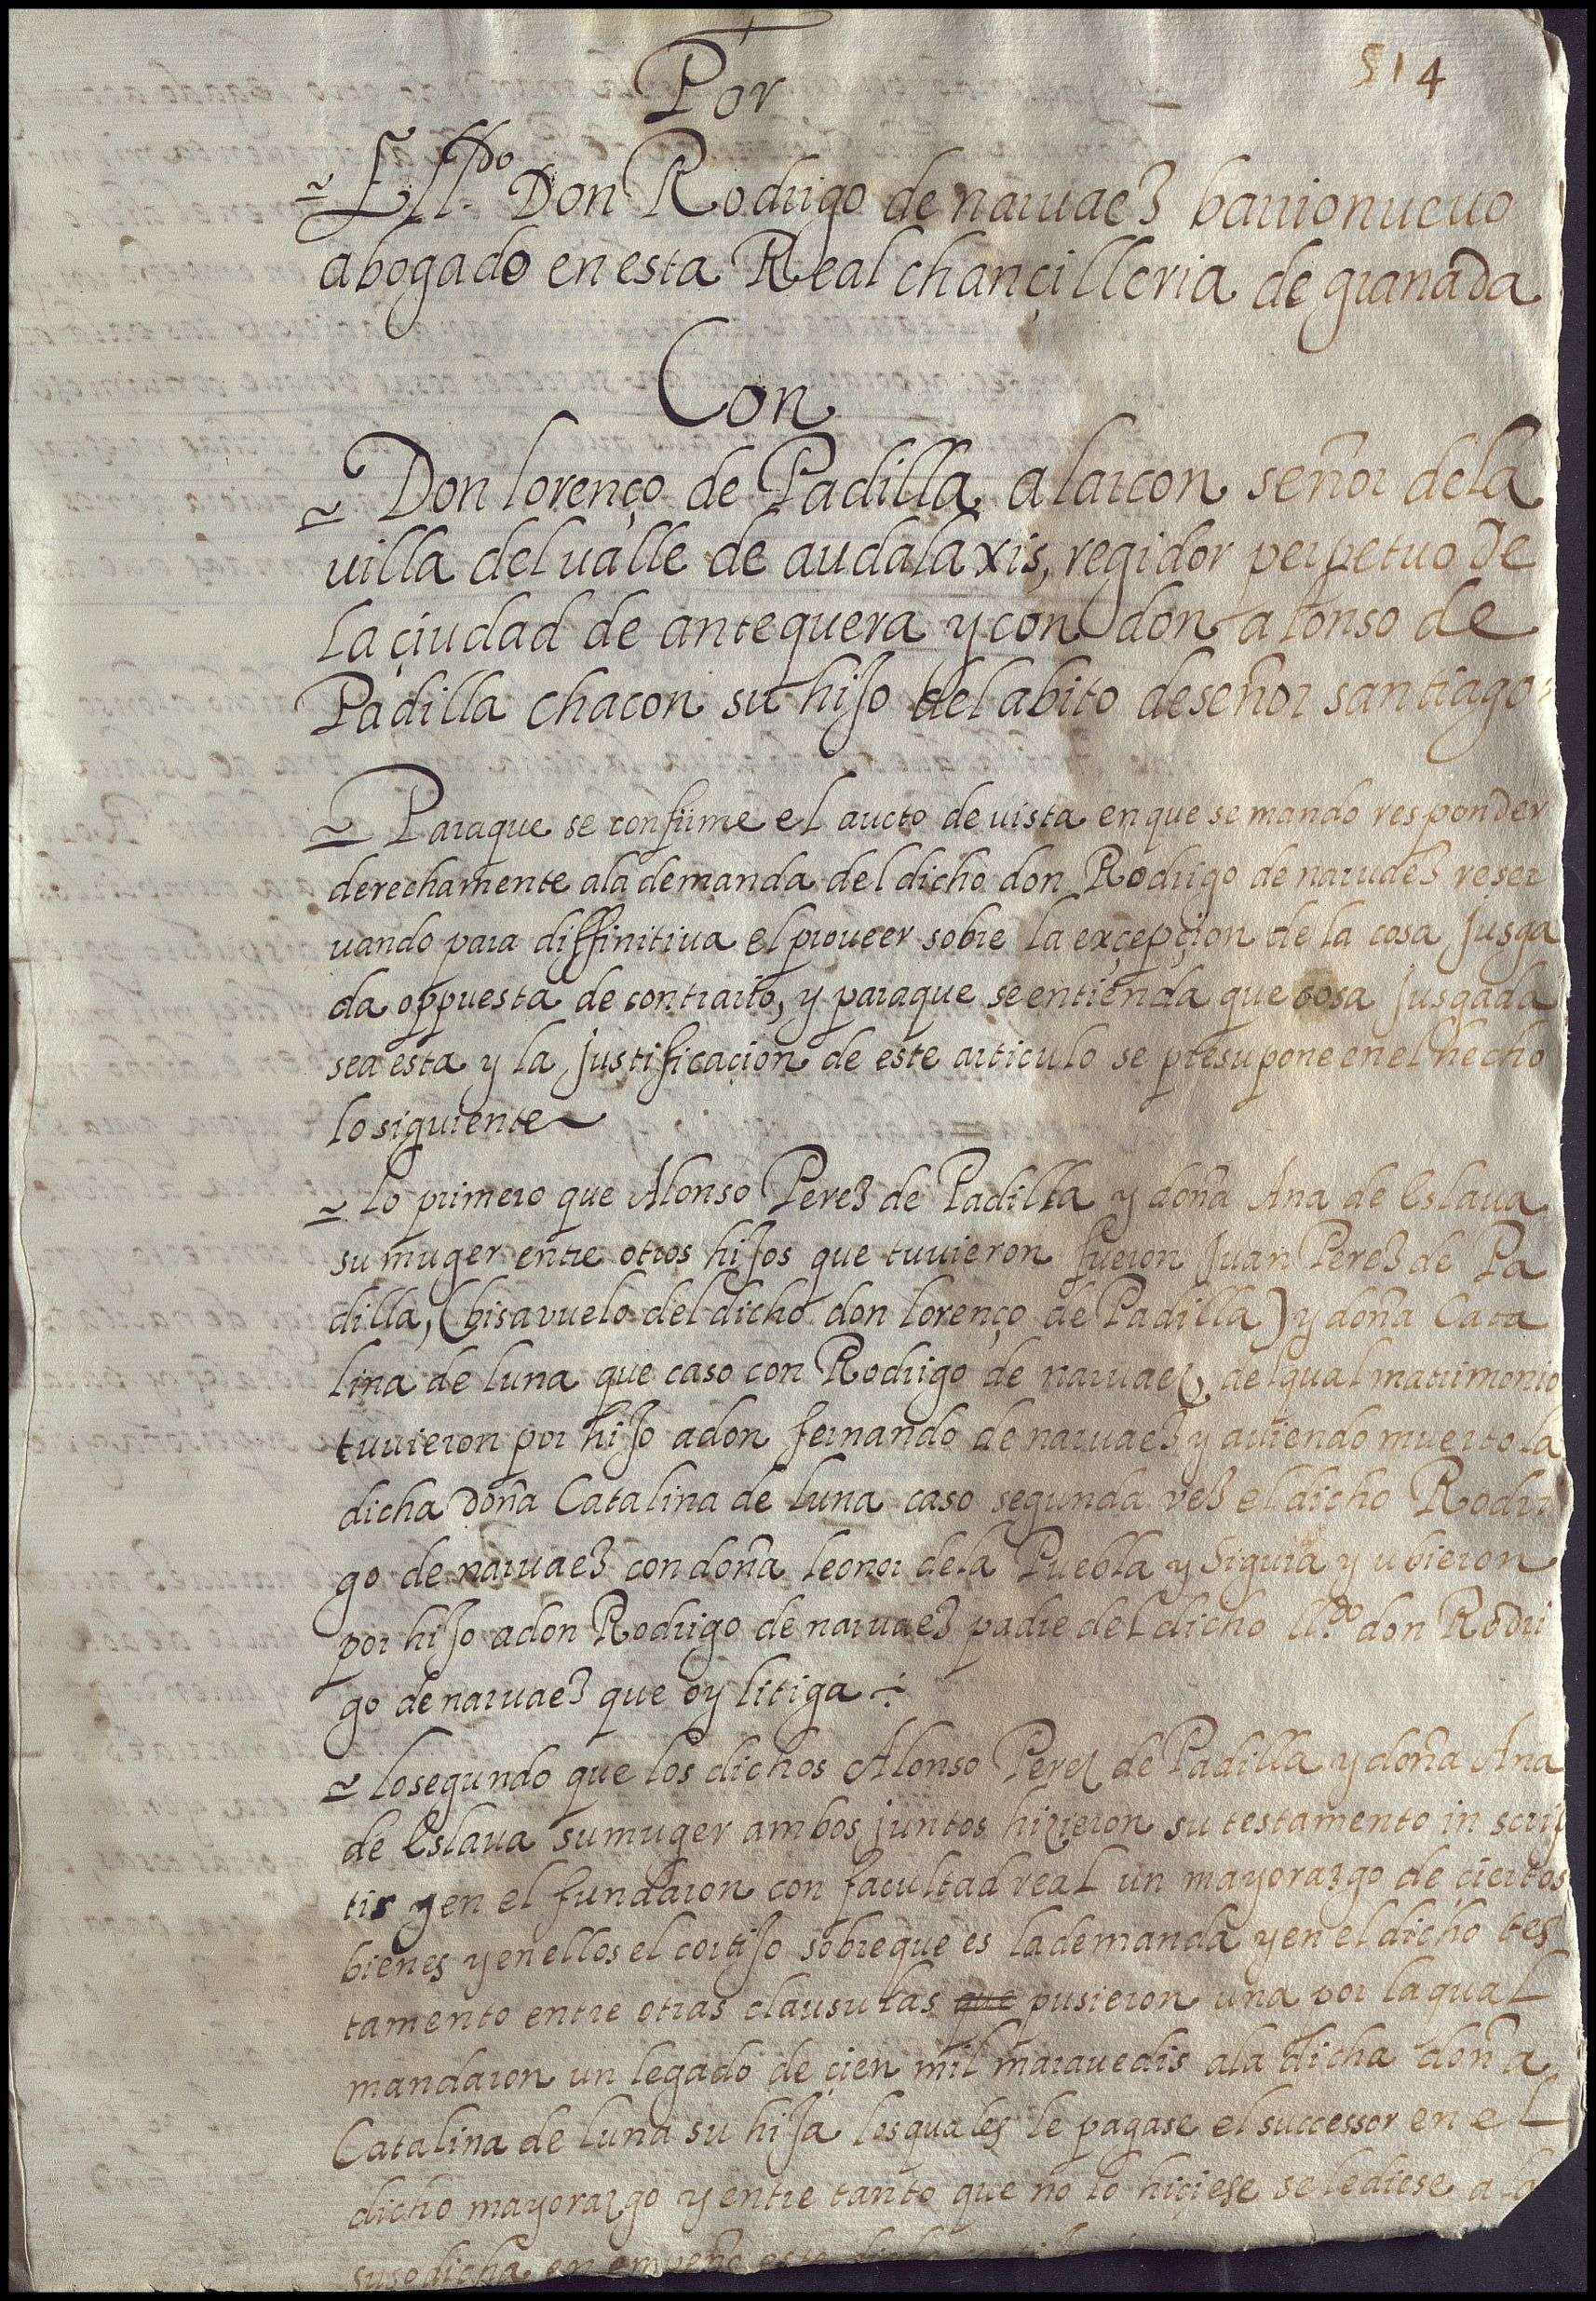 514
Por
El ll.do Don Rodrigo de naruaez barrionueuo
abogado en esta Real chançilleria de granada
Con
Don lorenço de Padilla alarcon señor dela
uilla del ualle de audalaxis, regidor perpetuo De
la çiudad de antequera y con don alonso de
Padilla chacon su hijo del abito de señor santiago
Paraque se confirme el aucto de uista en que se mando responder
derechamente ala demanda del dicho don Rodrigo de naruaez reser
uando para diffinitiua el proueer sobre la exçepçion de la cosa jusga
da oppuesta de contrario, y paraque se entienda que cosa jusgada
sea esta y la justificaçion de este articulo se presupone en el hecho
lo siguiente
lo primero que Alonso Perez de Padilla y doña Ana de Eslaua
su muger entre otros hijos que tuuieron fueron Juan Perez de Pa
dilla, (bisavuelo del dicho don lorenço de Padilla) y doña Cata
lina de luna que caso con Rodrigo de naruaez, del qual matrimonio
tuuieron por hijo adon fernando de naruaez y auiendo muerto la
dicha doña Catalina de luna caso segunda vez el dicho Rodri
go de naruaez con doña leonor dela Puebla y Sigura y ubieron
por hijo adon Rodrigo de naruaez padre del dicho ll.do don Rodri
go de naruaez que oy litiga
lo segundo que los dichos Alonso Perez de Padilla y doña Ana
de Eslaua su muger ambos juntos hizieron su testamento in scrip
tis y en el fundaron con facultad real un mayorazgo de çiertos
bienes y en ellos el cortijo sobre que es la demanda y en el dicho tes
tamento entre otras clausulas que pusieron una por la qual
mandaron un legado de çien mil marauedis ala dicha doña
Catalina de luna su hija los quales le pagase el successor en el
dicho mayorazgo y entre tanto que no lo hiçiese se le diese a la
susodicha en empeño este